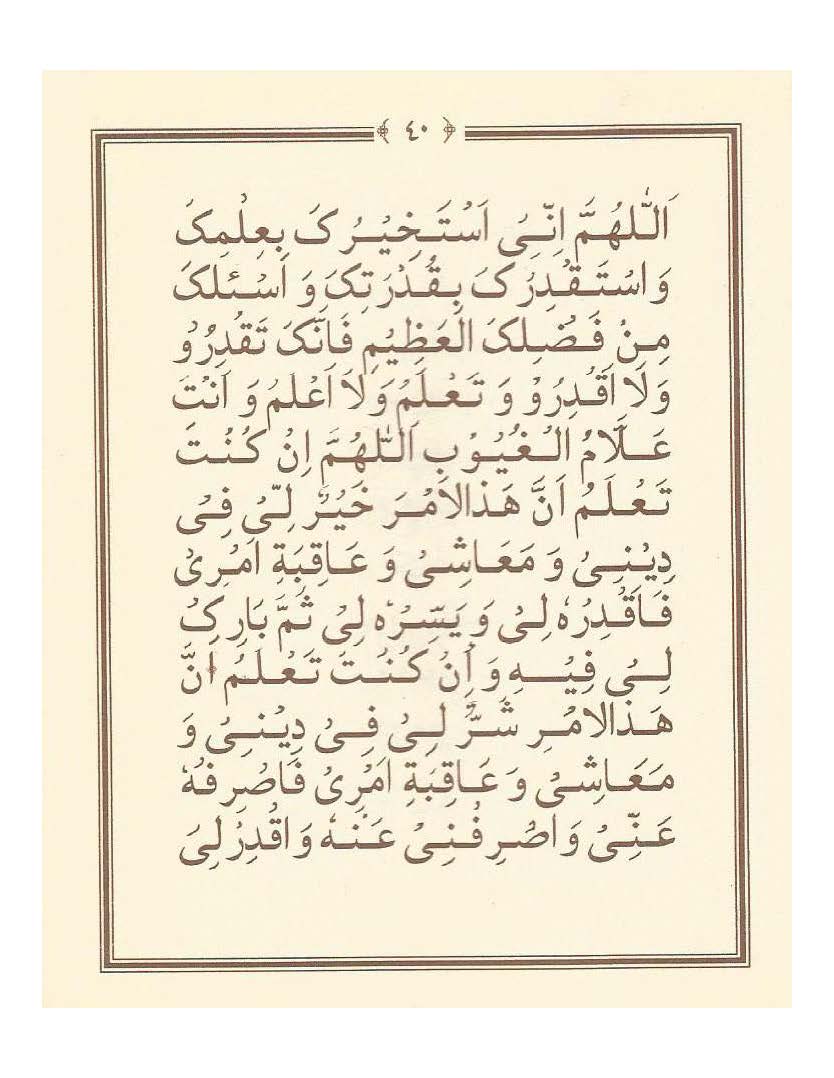 ٤٠
اَللّٰهُمَّ اِنِّیْ اَسْتَخِیْرُکَ بِعِلْمِکَ
وَاسْتَقْدِرُکَ بِقُدْرَتِکَ وَ اَسْئَلُکَ
مِنْ فَضْلِکَ الْعَظِیْمِ فَاِنَّکَ تَقْدِرُوْ
وَلَا اَقْدِرُوْ وَ تَعْلَمُ وَلَا اَعْلَمُ وَ اَنْتَ
عَلَّامُ الْغُیُوْبِ اَللّٰهُمَّ اِنْ کُنْتَ
تَعْلَمُ اَنَّ هَذالاَمْرَ خَیْرٌ لِّیْ فِیْ
دِیْنِیْ وَ مَعَاشِیْ وَ عَاقِبَةِ اَمْرِیْ
فَاقْدِرْهُ لِیْ وَ یَسِّرْهُ لِیْ ثُمَّ بَارِکْ
لِیْ فِیْهِ وَ اِنْ کُنْتَ تَعْلَمُ اَنَّ
هَذالامْرِ شَرٌّ لِیْ فِیْ دِیْنِیْ وَ
مَعَاشِیْ وَ عَاقِبَةِ اَمْرِیْ فَاصْرِفْهُ
عَنِّیْ وَاصْرِفْنِیْ عَنْهُ وَاقْدِرْ لِیَ